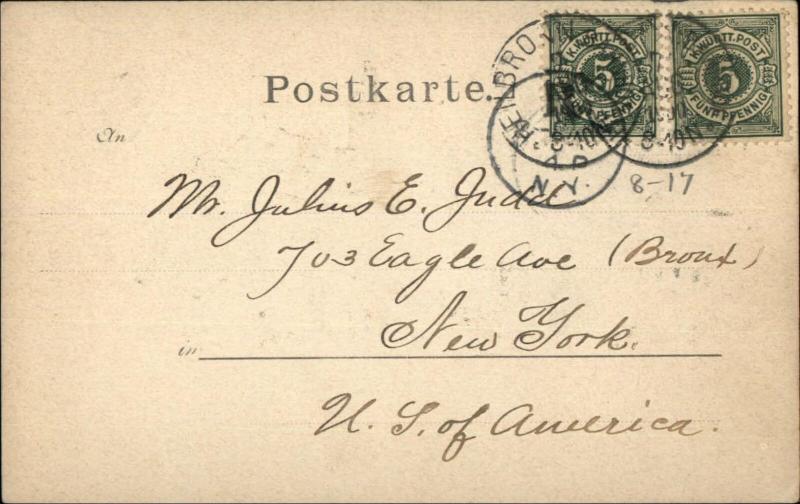 K. WÜRTT. POST
5
FÜNF PFENNIG
K. WÜRTT. POST
5
FÜNF PFENNIG
HEILBRO
8-10N
8-10N
N.Y.
Postkarte.
8-17
An
Mr. Julius E. Judd
703 Eagle Ave (Bronx)
in New York.
U. S. of America.